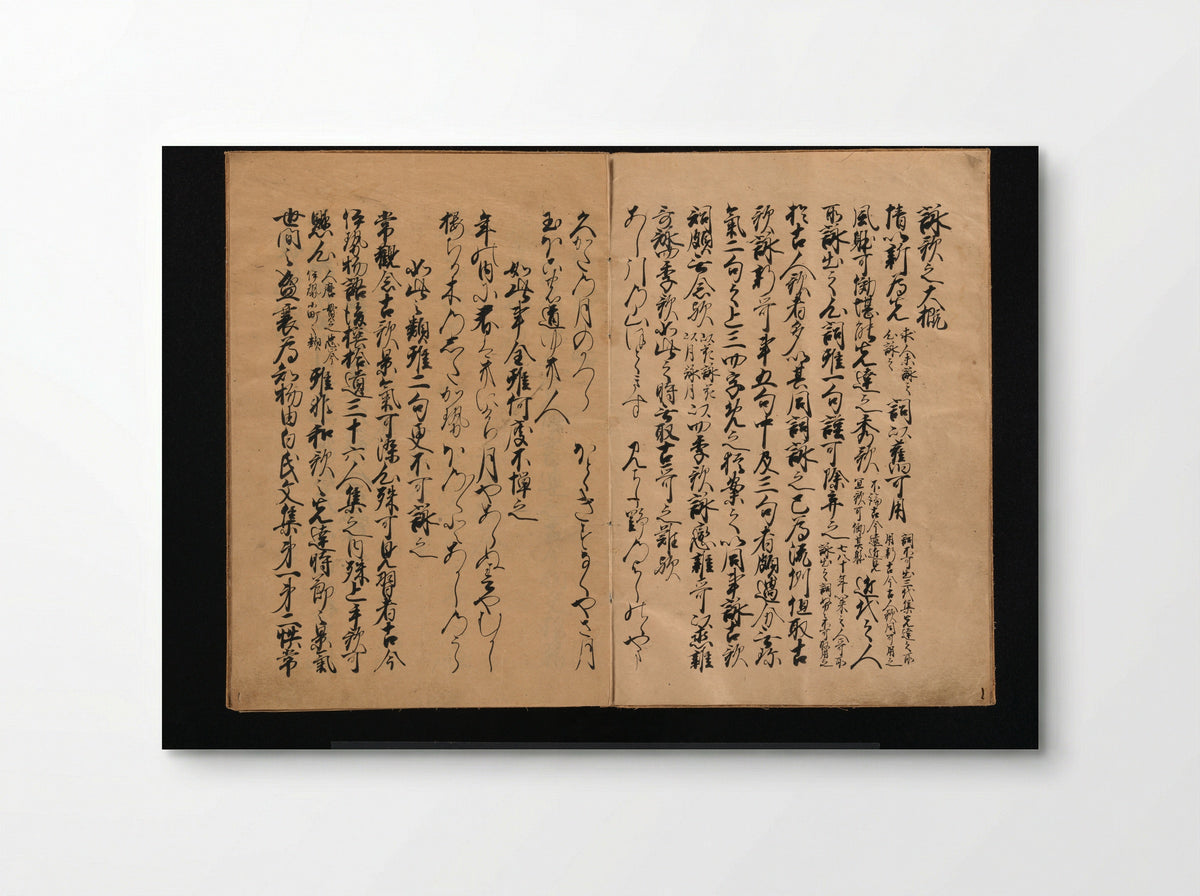 詠歌之大概
情以新為先 求人未詠之心詠之 詞以舊可用 詞不可出三代集先達之所用新古今古人歌同可用之
風躰可効堪能先達之秀歌 不論古今遠近見宜歌可効其躰 近代之人
所詠出之心詞雖一句謹可除弃之 七八十年以来之人哥所詠出之詞努々不可取用之
於古人歌者多以其同詞詠之已為流例但取古
歌詠新哥事五句中及三句者頗過分無珎
氣二句之上三四字免之猶案之以同事詠古歌
詞頗無念歟 以花詠花以月詠月 以四季歌詠恋雜哥以恋雜
哥詠四季歌如此之時無取古哥之難歟
あし引の山ほとゝきす みよし野のよしのゝやま
久かたの月のかつら ほとゝきすなくやさ月
玉ほこの道ゆき人
如此事全雖何度不憚之
年の内に春はきにけり 月やあらぬ春やむかし
桜ちる木のした風 ほの〳〵とあかしのうら
如此之類雖二句更不可詠之
常観念古歌景氣可染心殊可見習者古今
伊勢物語後撰拾遺三十六人集之内殊上手歌可
懸心 人麿貫之忠岑伊勢小町等類 雖非和歌之先達時節之景氣
世間之盛衰為知物由白氏文集第一第二帙常